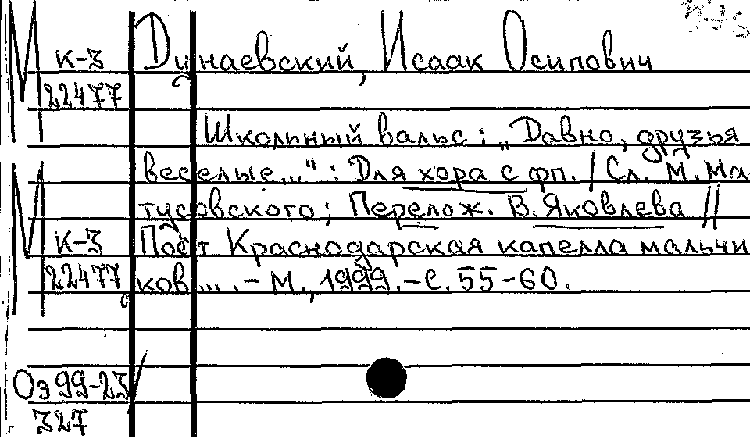 М к-3 Дунаевский, Исаак Осипович
22477
Школьный вальс : „Давно, друзья
веселые..." : Для хора с фп. / Сл. М. Ма-
тусовского; Перелож. В. Яковлева //
М к-3 Поёт Краснодарская капелла мальчи
22477 ков ... . - М., 1999. - С. 55-60.
Оз 99-23
327